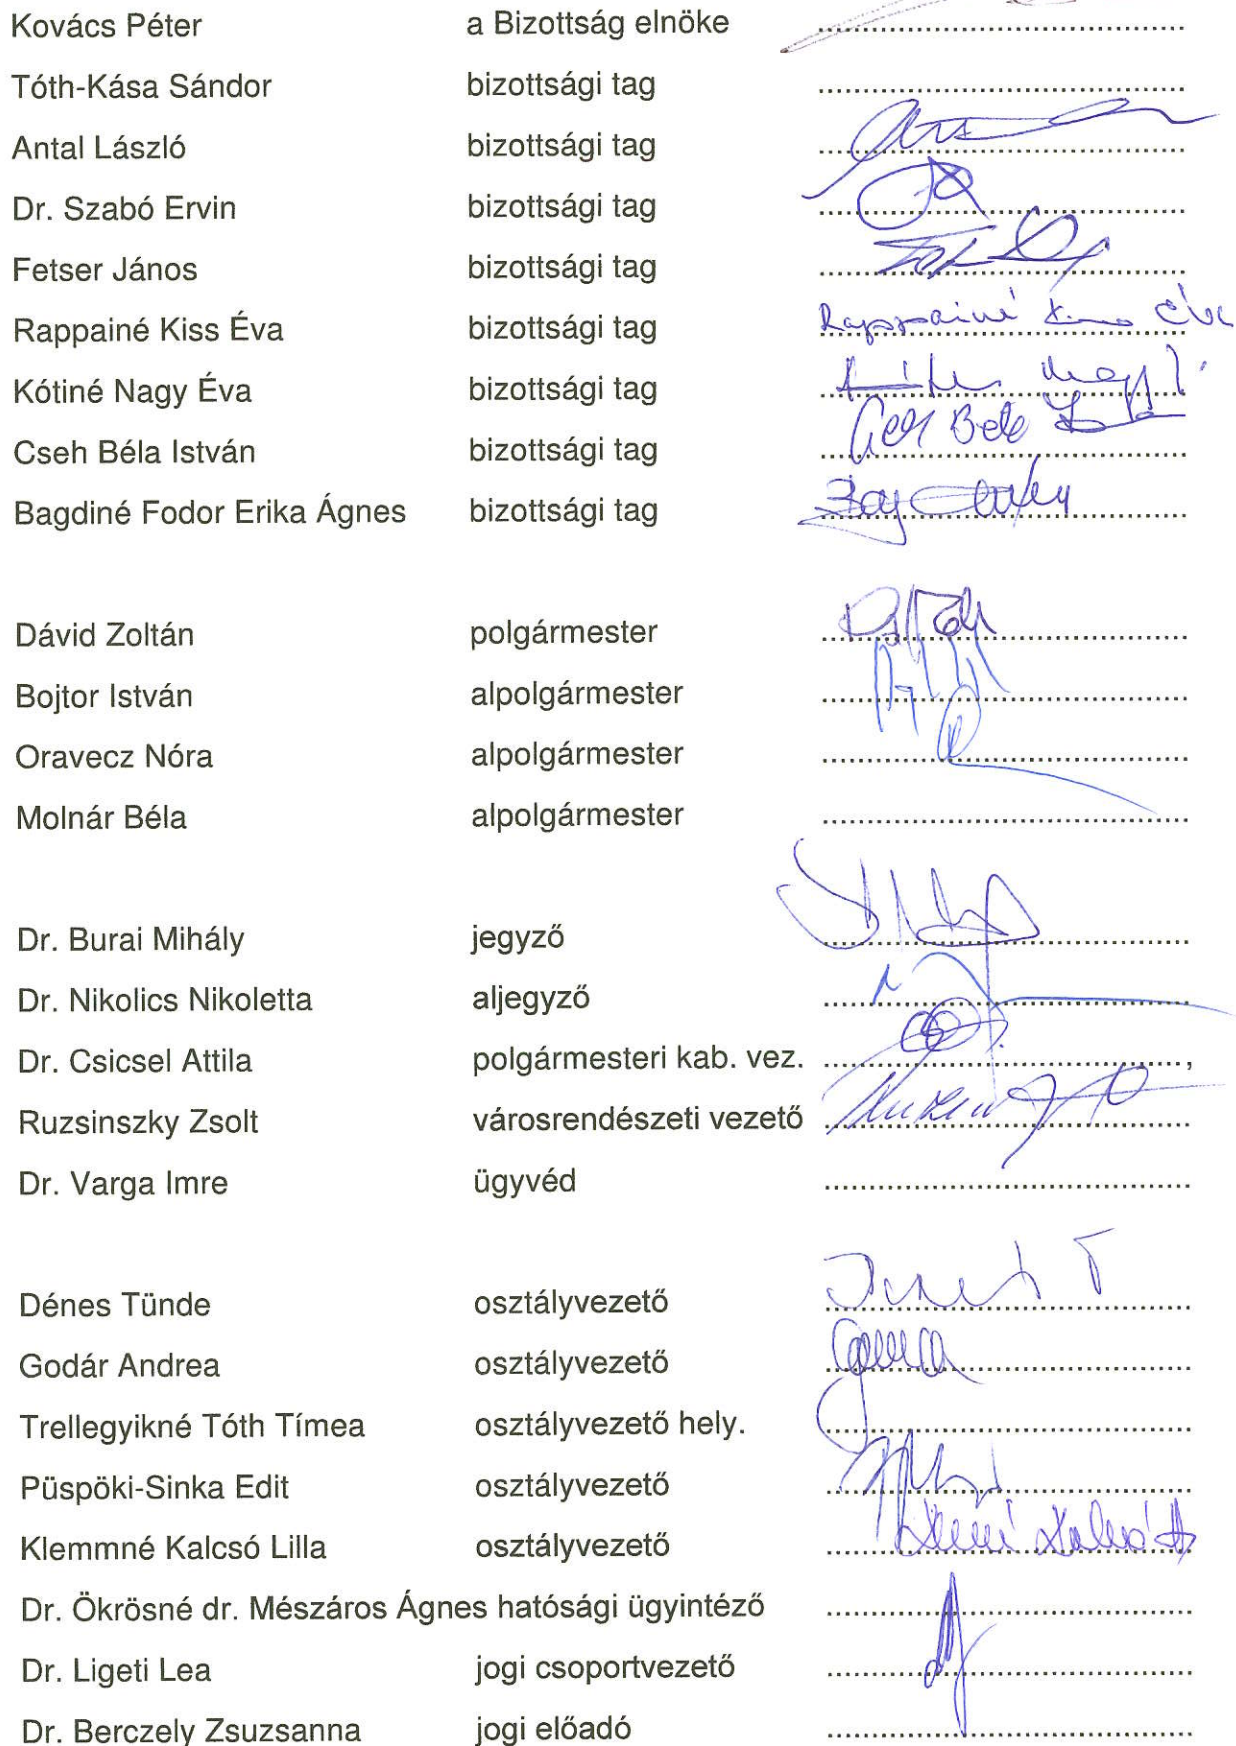 Kovács Péter a Bizottság elnöke
Tóth-Kása Sándor bizottsági tag
Antal László bizottsági tag
Dr. Szabó Ervin bizottsági tag
Fetser János bizottsági tag
Rappainé Kiss Éva bizottsági tag Rappainé Kiss Éva
Kótiné Nagy Éva bizottsági tag
Cseh Béla István bizottsági tag
Bagdiné Fodor Erika Ágnes bizottsági tag
Dávid Zoltán polgármester
Bojtor István alpolgármester
Oravecz Nóra alpolgármester
Molnár Béla alpolgármester
Dr. Burai Mihály jegyző
Dr. Nikolics Nikoletta aljegyző
Dr. Csicsel Attila polgármesteri kab. vez.
Ruzsinszky Zsolt városrendészeti vezető
Dr. Varga Imre ügyvéd
Dénes Tünde osztályvezető
Godár Andrea osztályvezető
Trellegyikné Tóth Tímea osztályvezető hely.
Püspöki-Sinka Edit osztályvezető
Klemmné Kalcsó Lilla osztályvezető
Dr. Ökrösné dr. Mészáros Ágnes hatósági ügyintéző
Dr. Ligeti Lea jogi csoportvezető
Dr. Berczely Zsuzsanna jogi előadó